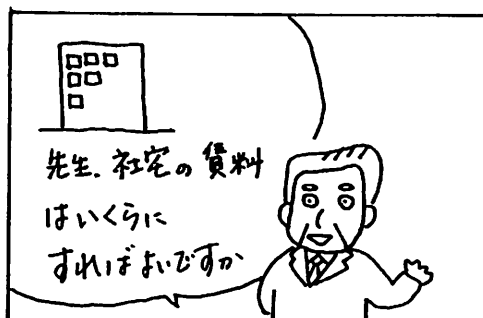 先生、社宅の賃料
はいくらに
すればよいですか